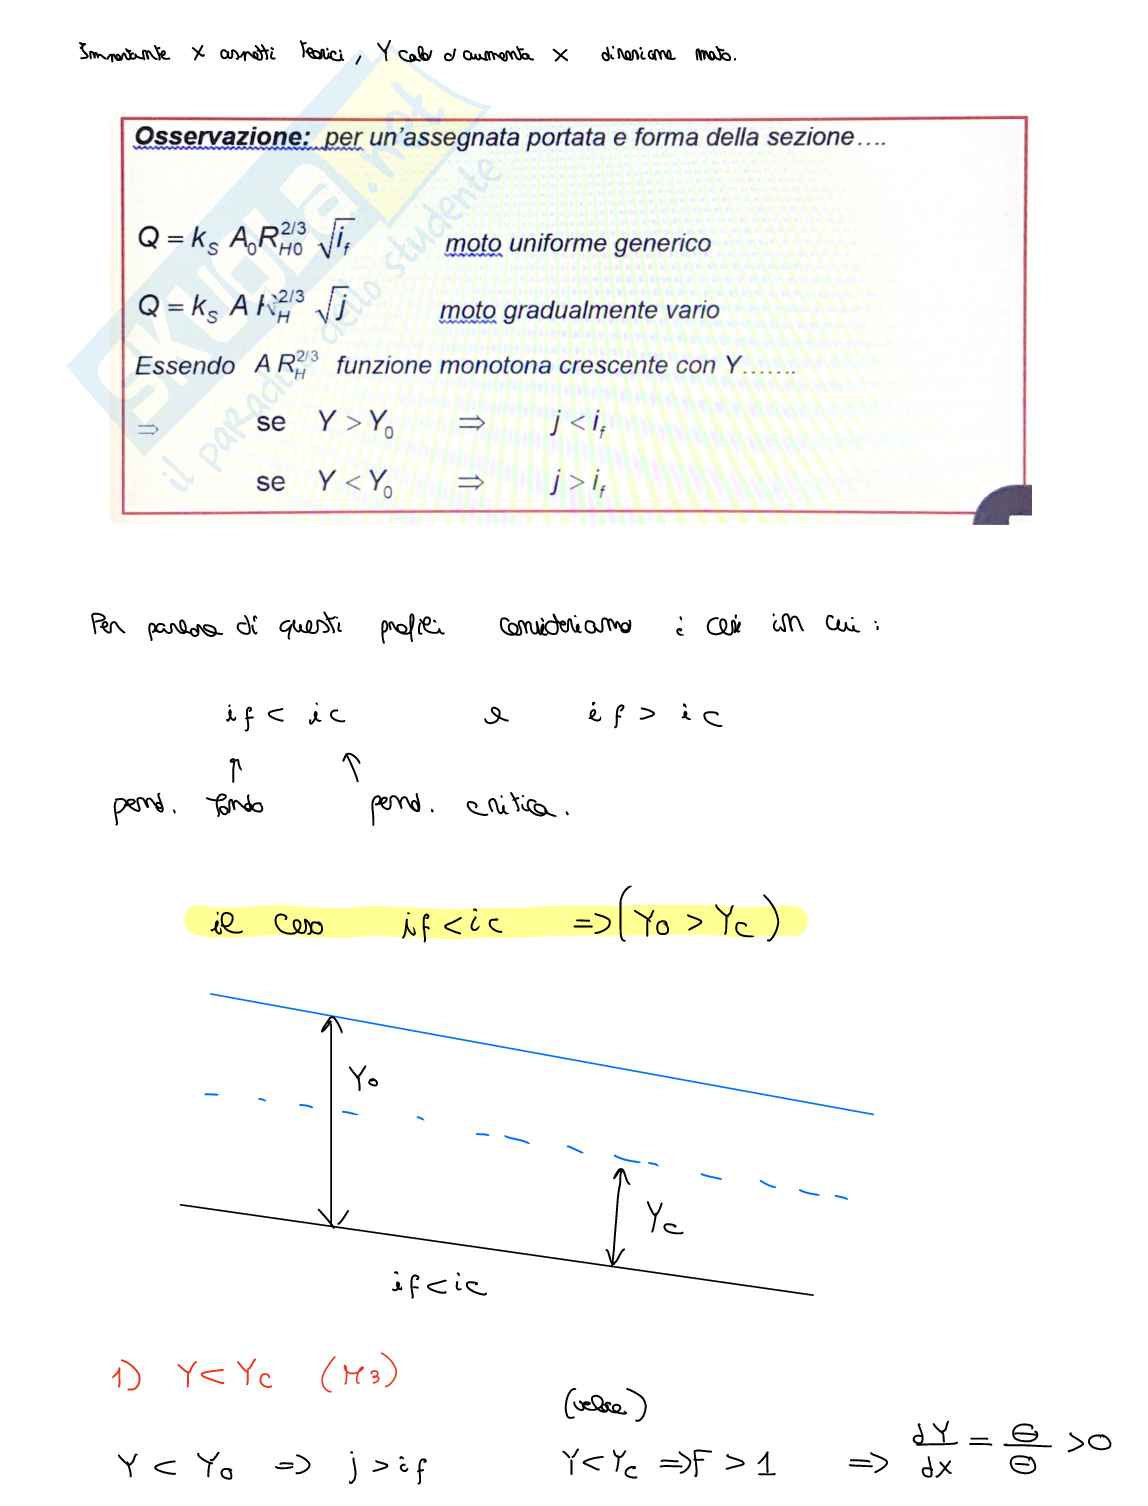 Importante x aspetti teorici, Y cala o aumenta x direzione moto.
Osservazione: per un'assegnata portata e forma della sezione....
Q = k_S A_0 R_H0^2/3 √i_f moto uniforme generico
Q = k_S A R_H^2/3 √j moto gradualmente vario
Essendo A R_H^2/3 funzione monotona crescente con Y.......
⇒ se Y > Y_0 ⇒ j < i_f
se Y < Y_0 ⇒ j > i_f
SKUOLA.net
il paradiso dello studente
Per parlare di questi profili consideriamo i casi in cui :
if < ic e if > ic
↑ ↑
pend. fondo pend. critica.
il caso if < ic => (Yo > Yc)
Yo
Yc
if < ic
1) Y < Yc (M3)
(veloce)
Y < Yo => j > if Y < Yc => F > 1 => dY/dx = ⊖/⊖ > 0